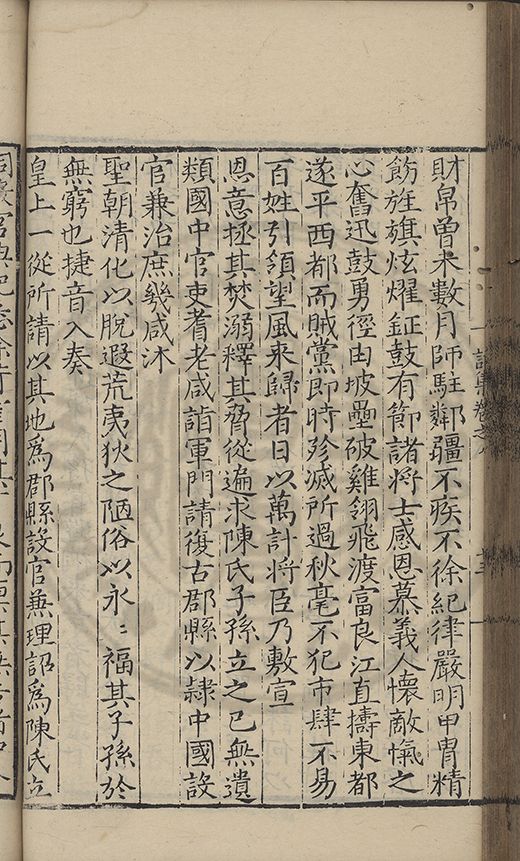 財帛曾未數月師駐鄰疆不疾不徐紀律嚴明甲冑精
飭旌旗炫燿鉦鼓有節諸將士感恩慕義人懷敵愾之
心奮迅鼓勇徑由坡壘破雞翎飛渡富良江直擣東都
遂平西都而賊黨即時殄滅所過秋毫不犯市肆不易
百姓引領望風來歸者日以萬計將臣乃敷宣
恩意拯其焚溺釋其脅從遍求陳氏子孫立之已無遺
類國中官吏耆老咸詣軍門請復古郡縣以隸中國設
官兼治庶幾咸沐
聖朝清化以脫遐荒夷狄之陋俗以永〻福其子孫於
無窮也捷音入奏
皇上一從所請以其地為郡縣設官兼理詔為陳氏立